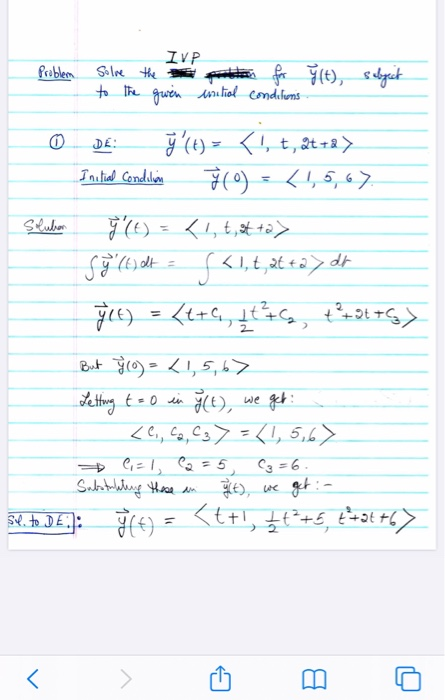 IVP
Problem Solve the for y⃗(t), subject
to the given initial conditions.
① DE: y⃗'(t) = <1, t, 2t+2>
Initial Condition y⃗(0) = <1, 5, 6>.
Solution y⃗'(t) = <1, t, 2t+2>
∫y⃗'(t)dt = ∫<1, t, 2t+2> dt
y⃗(t) = <t+C₁, 1/2 t²+C₂, t²+2t+C₃>
But y⃗(0) = <1, 5, 6>
Letting t = 0 in y⃗(t), we get:
<C₁, C₂, C₃> = <1, 5, 6>
⇒ C₁=1, C₂ = 5, C₃ = 6.
Substituting these in y⃗(t), we get:-
Sol. to DE: y⃗(t) = <t+1, 1/2 t²+5, t²+2t+6>